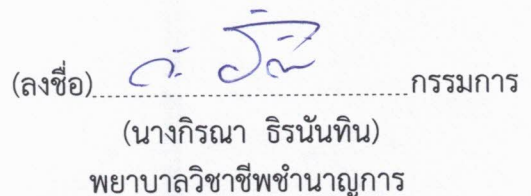 (ลงชื่อ) กรรมการ
(นางกิรณา ธิรนันทิน)
พยาบาลวิชาชีพชำนาญการ